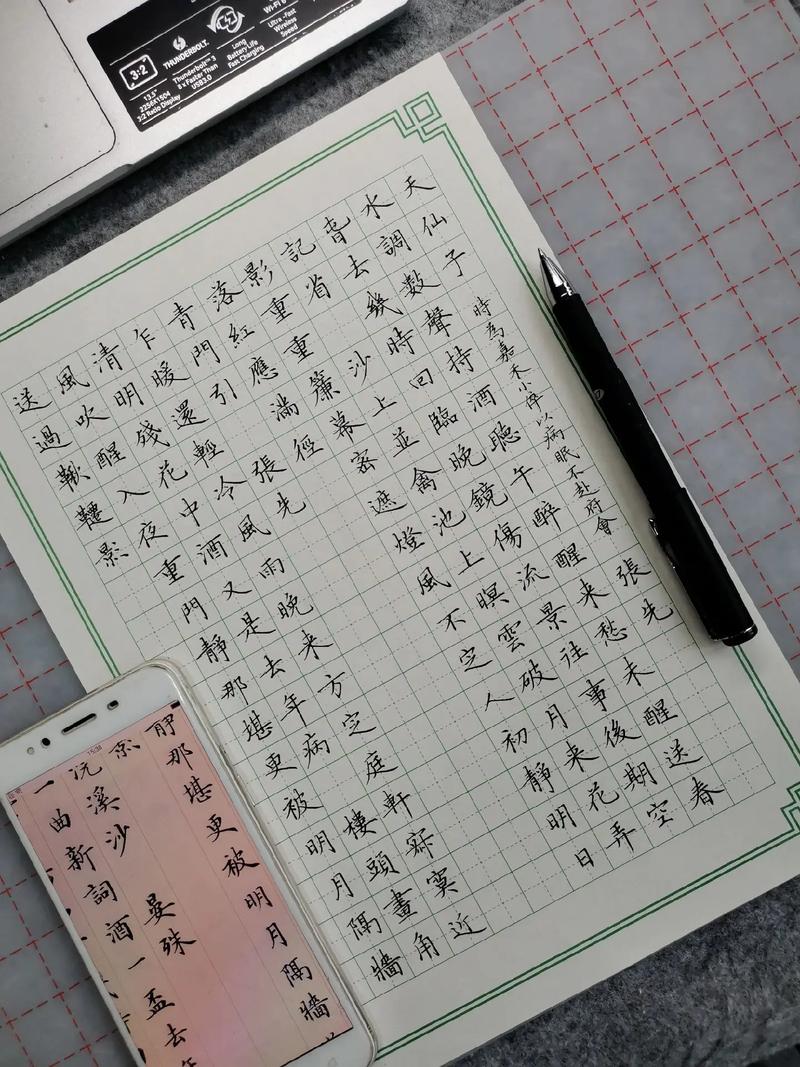 3:2
13.5"
2256X1504
3:2 Ratio Display
THUNDERBOLT™
Thunderbolt™ 3
8 x Faster Than
USB3.0
Long
Battery Life
Fast Charging
Wi-Fi 6
Ultra-Fast
Wireless
Speed
天仙子 時為嘉禾小倅以病眠不赴府會 張先
水調數聲持酒聽午醉醒来愁未醒送春
春去幾時回臨晚鏡傷流景往事後期空
記省 沙上並禽池上暝雲破月来花弄
影重重簾幕密遮燈風不定人初靜明日
落紅應滿徑
青門引 張先
乍暖還輕冷風雨晚来方定庭軒寂寞近
清明殘花中酒又是去年病 樓頭畫角
風吹醒入夜重門靜那堪更被明月隔牆
送過鞦韆影
靜那堪更被明月隔牆
浣溪沙 晏殊
一曲新詞酒一盃去年